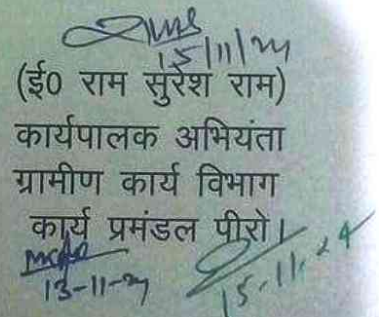 15/11/24
(ई० राम सुरेश राम)
कार्यपालक अभियंता
ग्रामीण कार्य विभाग
कार्य प्रमंडल पीरो।
13-11-24
15.11.24